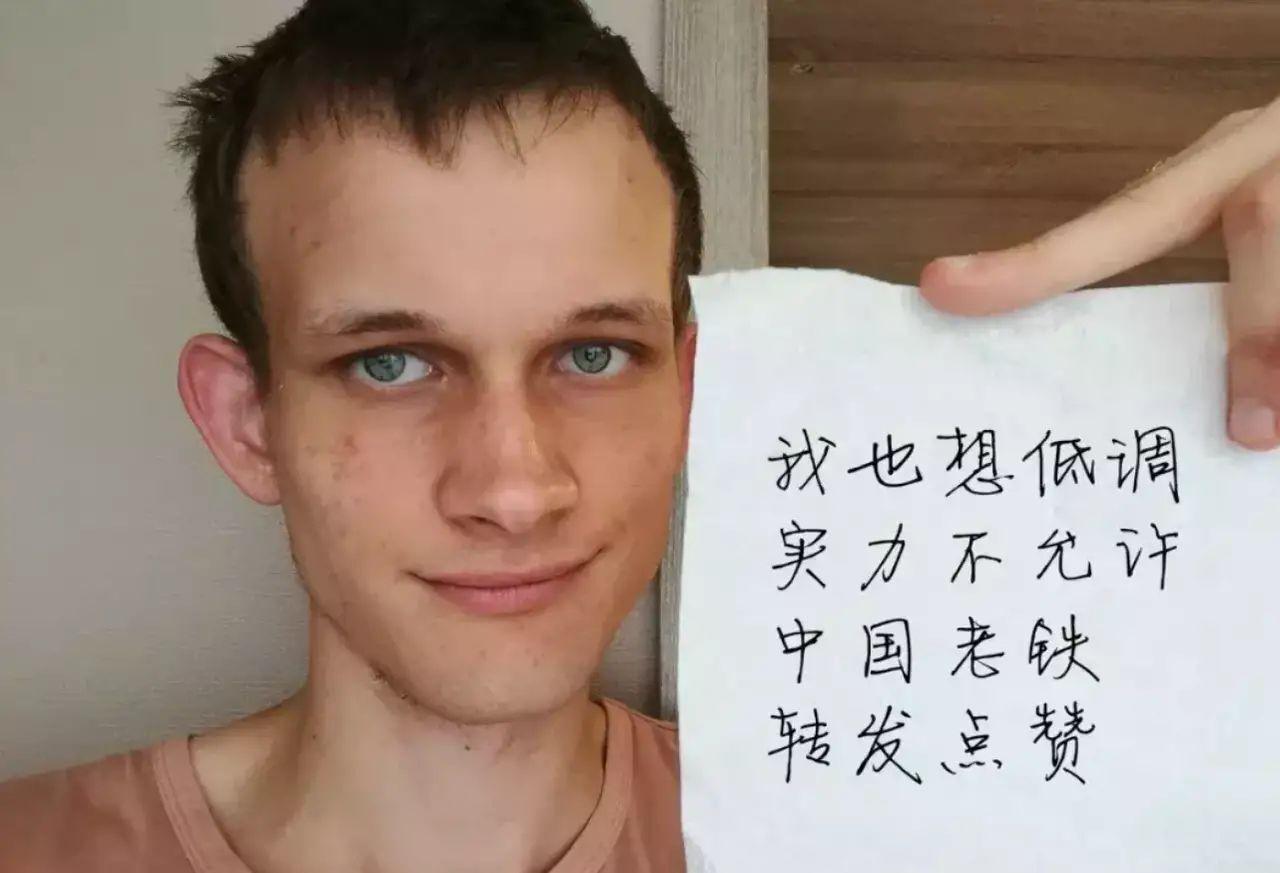 我也想低调
实力不允许
中国老铁
转发点赞